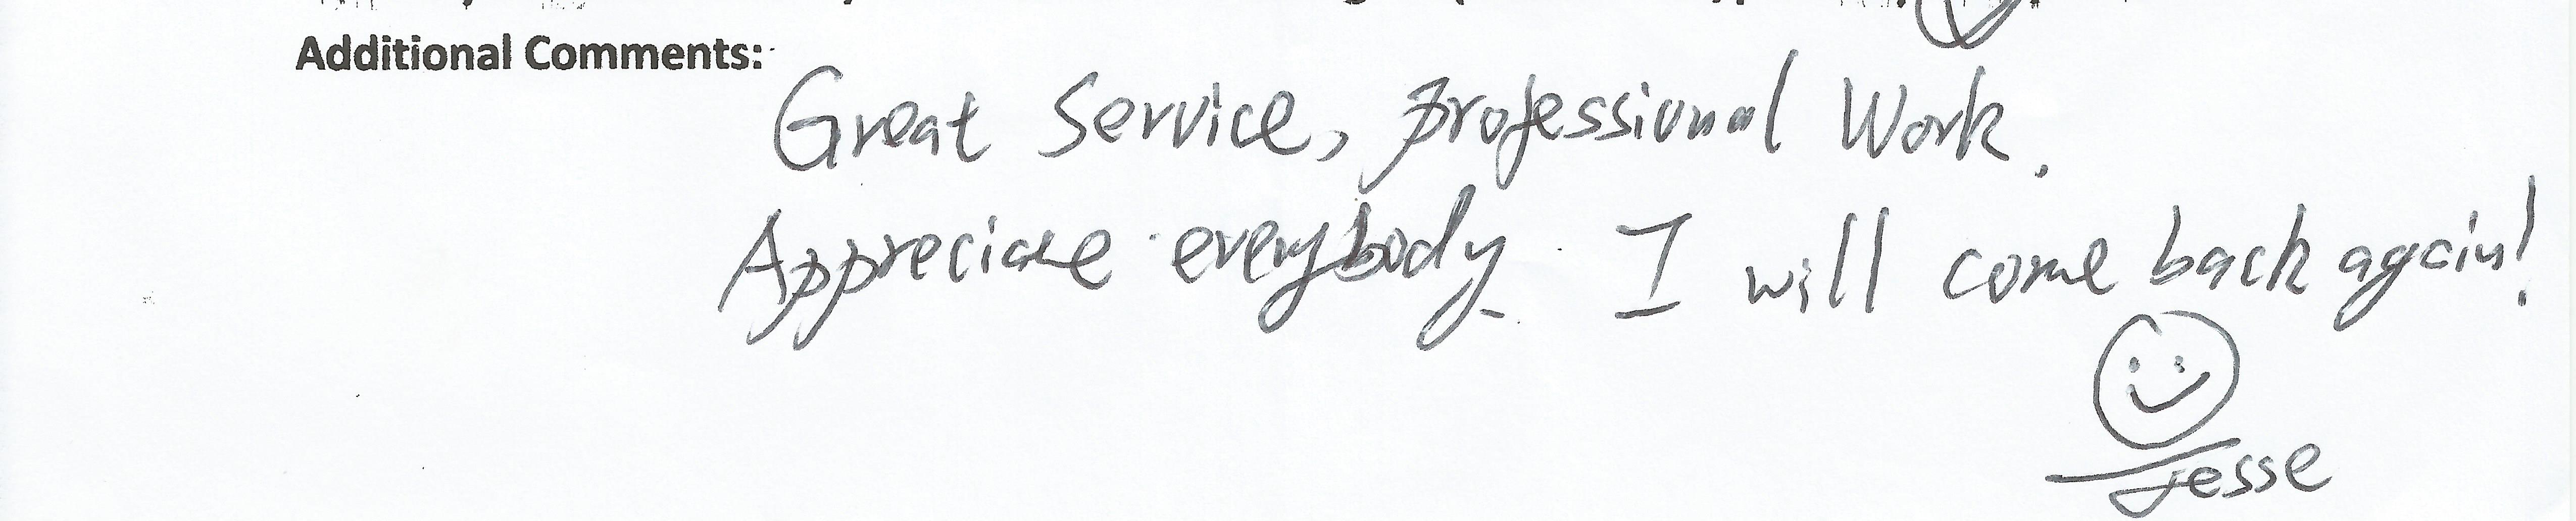 Additional Comments:
Great Service, professional Work.
Appreciate everybody. I will come back again!
Jesse